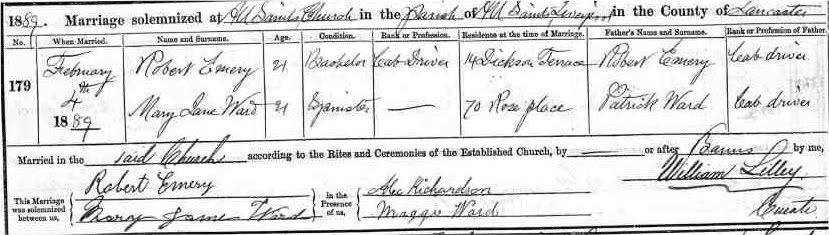 1889. Marriage solemnized at All Saints Church in the Parish of All Saints Liverpool in the County of Lancaster
No. When Married. Name and Surname. Age. Condition. Rank or Profession. Residence at the time of Marriage. Father's Name and Surname. Rank or Profession of Father.
179 February 4th 1889 Robert Emery 21 Bachelor Cab Driver 14 Dickson Terrace Robert Emery Cab driver
Mary Jane Ward 21 Spinster — 70 Rose place Patrick Ward Cab driver
Married in the said Church according to the Rites and Ceremonies of the Established Church, by — or after Banns by me,
William Lilley
Curate
This Marriage was solemnized between us,
Robert Emery
Mary Jane Ward
in the Presence of us,
Alec Richardson
Maggie Ward